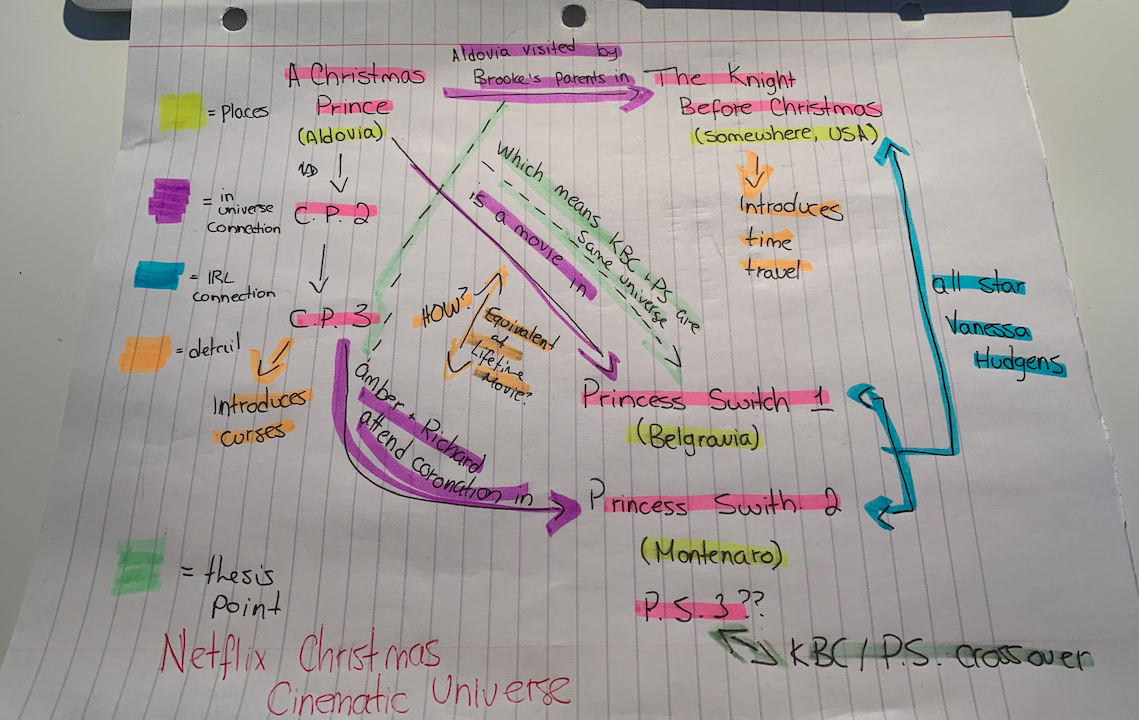 Aldovia visited by
Brooke's parents in
A Christmas
Prince
(Aldovia)
The Knight
Before Christmas
(Somewhere, USA)
= Places
= in
universe
connection
= IRL
connection
= detail
C.P.2
C.P.3
Introduces
curses
Which means KBC + PS are
same universe
is a movie in
HOW?
Equivalent
of
Lifetime
Movie?
Introduces
time
travel
all star
Vanessa
Hudgens
Amber + Richard
attend coronation in
Princess Switch 1
(Belgravia)
Princess Swith 2
(Montenaro)
P.S.3??
KBC / P.S. crossover
= thesis
point
Netflix Christmas
Cinematic Universe